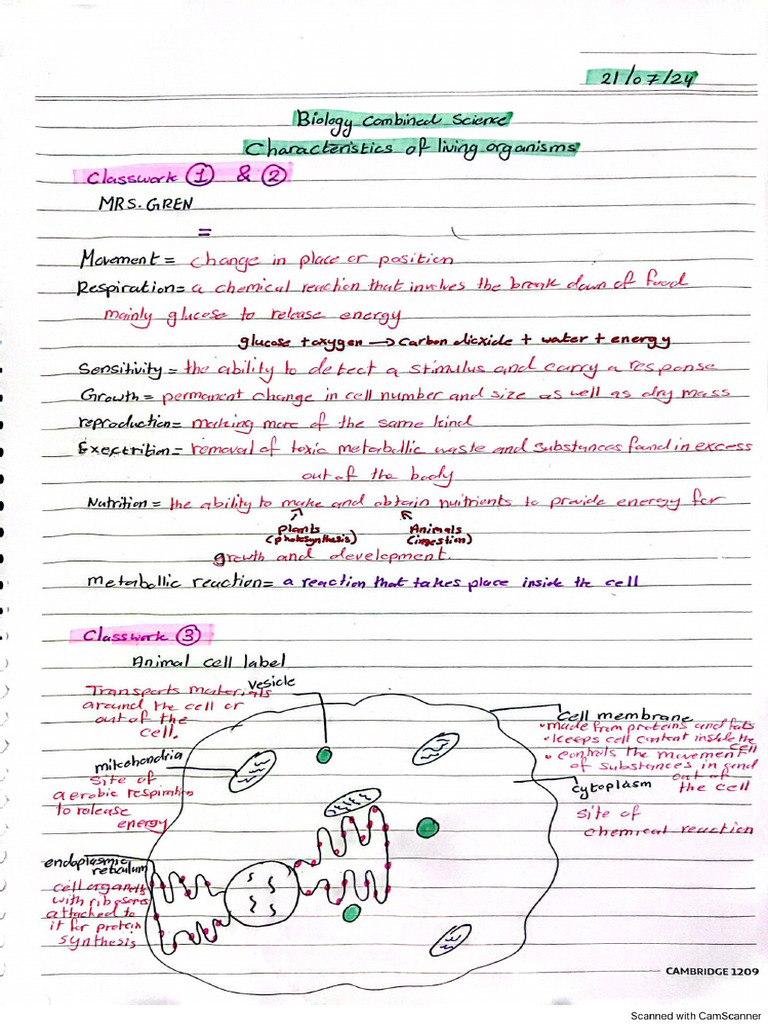 21/07/24
Biology Combined Science
Characteristics of living organisms
Classwork ① & ②
MRS. GREN
=
Movement = change in place or position
Respiration = a chemical reaction that involves the break down of food
mainly glucose to release energy
glucose + oxygen → carbon dioxide + water + energy
Sensitivity = the ability to detect a stimulus and carry a response
Growth = permanent change in cell number and size as well as dry mass
reproduction = making more of the same kind
Exectrition = removal of toxic metabollic waste and substances found in excess
out of the body
Nutrition = the ability to make and obtain nuitrients to provide energy for
Plants Animals
(photosynthesis) (ingestion)
growth and development.
metabollic reaction = a reaction that takes place inside the cell
Classwork ③
Animal cell label
Transports materials
around the cell or
out of the
cell.
vesicle
mitochondria
Site of
aerobic respiration
to release
energy
endoplasmic
reticulum
cell organells
with ribosomes
attached to
it for protein
synthesis
cell membrane
• made from proteins and fats
• keeps cell content inside the
cell
• controls the movement
of substances in and
out of
the cell
cytoplasm
site of
chemical reaction
CAMBRIDGE 1209
Scanned with CamScanner